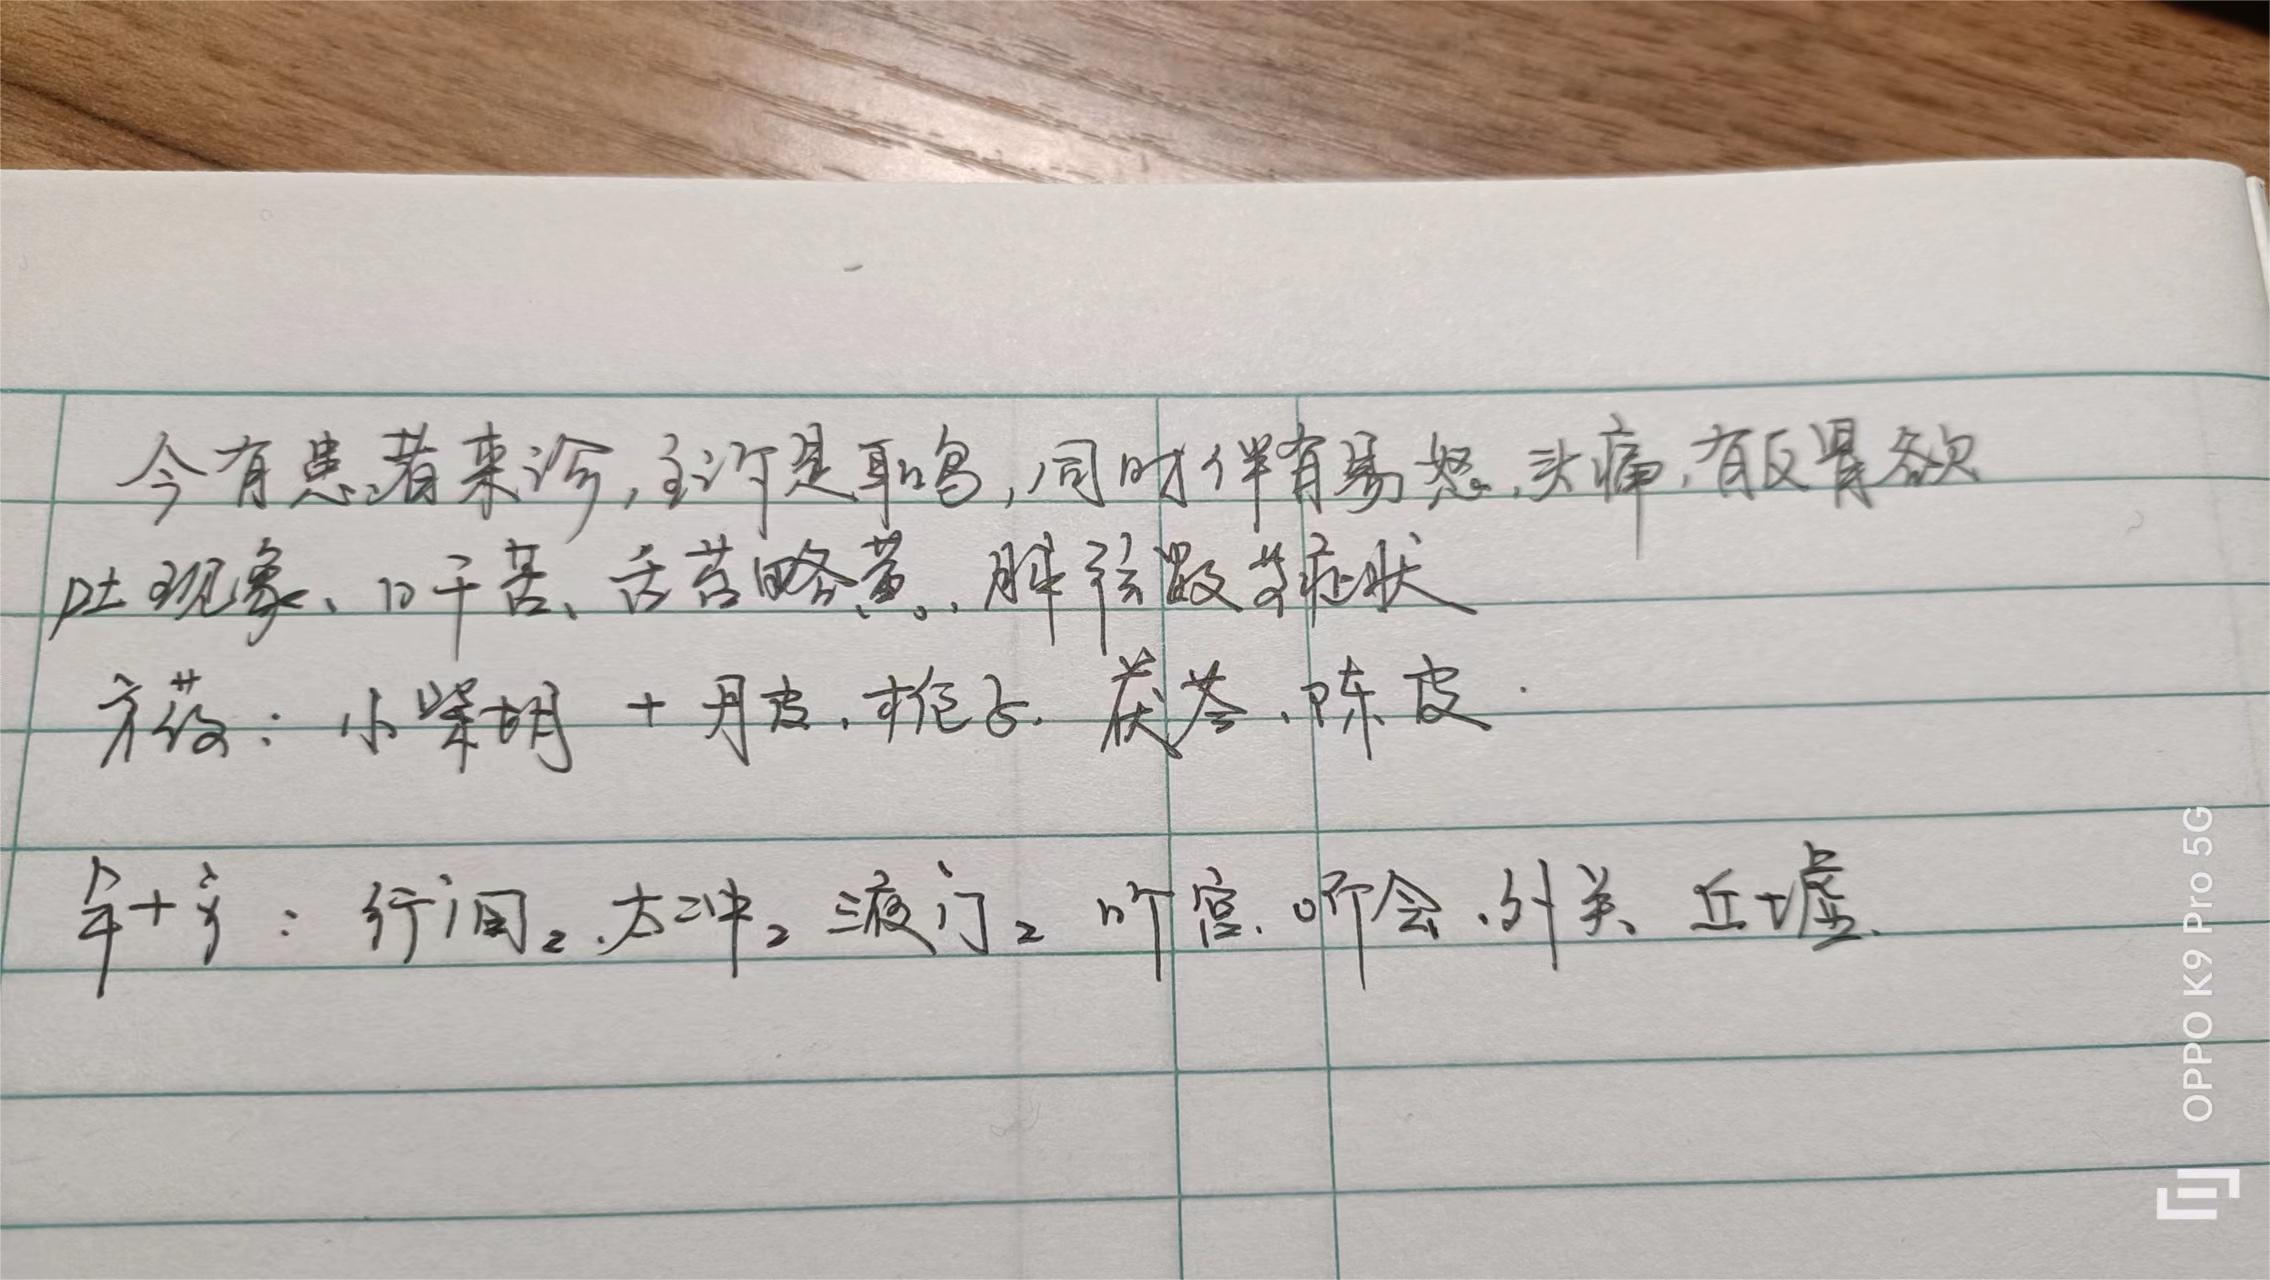 今有患者来诊,主诉是耳鸣,同时伴有易怒、头痛、有反胃欲
吐现象、口干苦、舌苔略黄。、脉弦数等症状
方药:小柴胡 + 丹皮、栀子、茯苓、陈皮.
针方:行间₂、太冲₂ 液门₂ 听宫、听会、外关、丘墟.
OPPO K9 Pro 5G